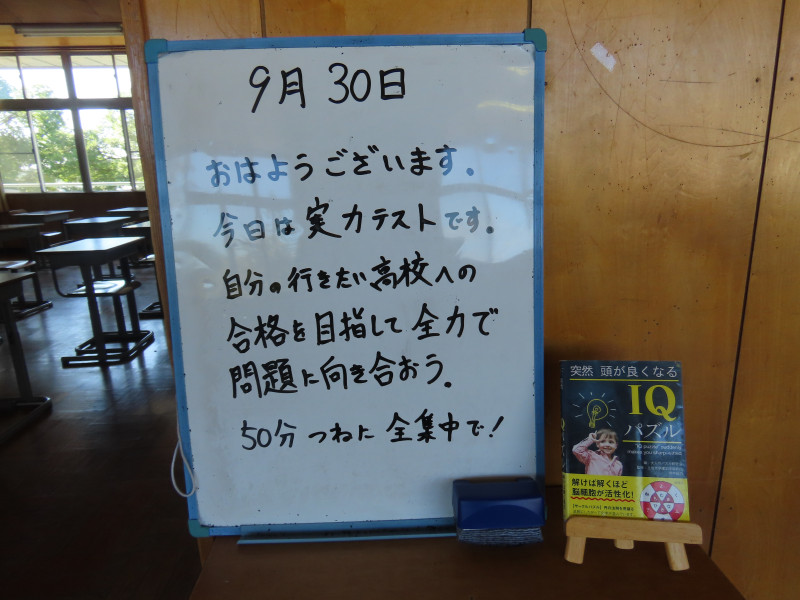 9月30日
おはようございます。
今日は実力テストです。
自分の行きたい高校への
合格を目指して全力で
問題に向き合おう。
50分つねに全集中で!
突然 頭が良くなる
IQ
パズル
解けば解くほど
脳細胞が活性化!